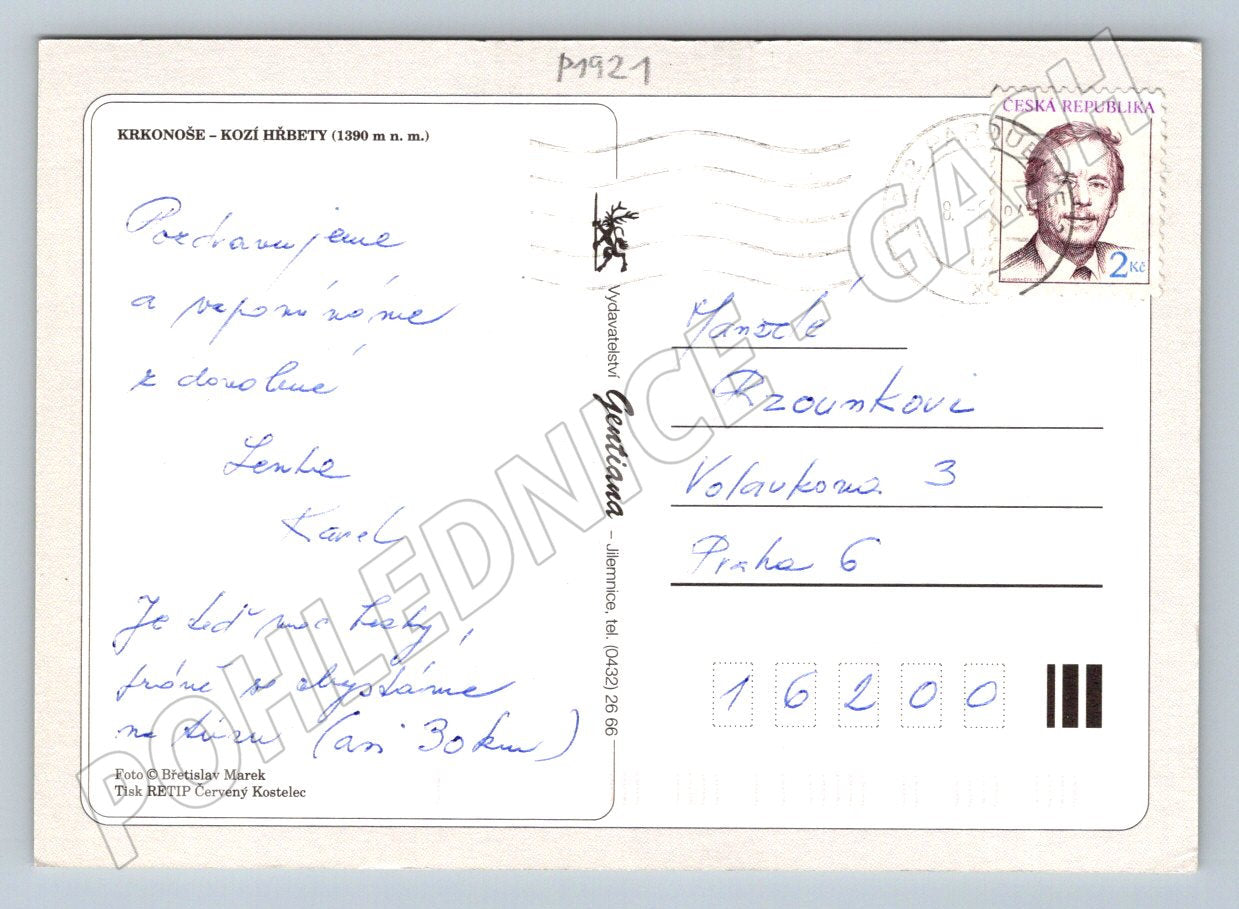 P1921
KRKONOŠE – KOZÍ HŘBETY (1390 m n. m.)
Pozdravujeme
a vzpomínáme
z dovolené
Lenka
Karel
Je teď moc hezky,
se chystáme
na túru (asi 30 km)
Foto © Břetislav Marek
Tisk RETIP Červený Kostelec
Vydavatelství Gentiana – Jilemnice, tel. (0432) 26 66
ČESKÁ REPUBLIKA
2 Kč
Manželé
Rzounkovi
Volavkova 3
Praha 6
16200
POHLEDNICE . GASH